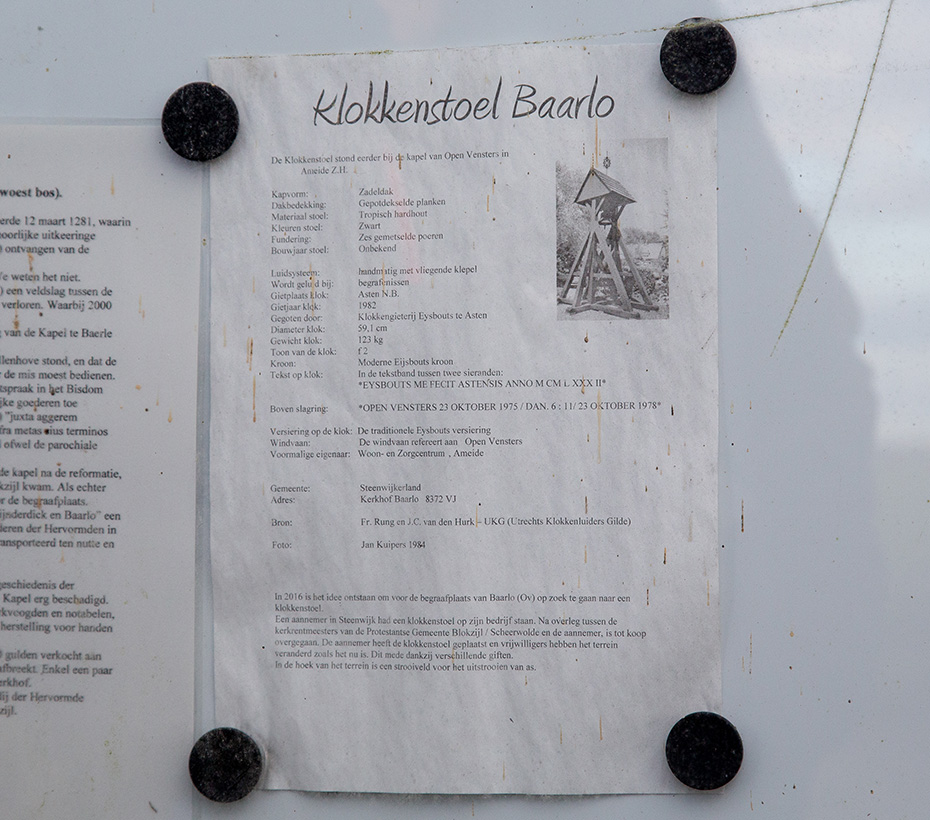 woest bos).
erde 12 maart 1281, waarin
oorlijke uitkeeringe
ontvangen van de
e weten het niet.
) een veldslag tussen de
verloren. Waarbij 2000
van de Kapel te Baerle
llenhove stond, en dat de
de mis moest bedienen.
tspraak in het Bisdom
jke goederen toe
) "juxta aggerem
fra metas eius terminos
ofwel de parochiale
de kapel na de reformatie,
kzijl kwam. Als echter
r de begraafplaats.
ijnderdick en Baarlo" een
deren der Hervormden in
ansporteerd ten nutte en
geschiedenis der
Kapel erg beschadigd.
rkvoogden en notabelen,
herstelling voor handen
gulden verkocht aan
afbreekt. Enkel een paar
erkhof.
lij der Hervormde
zijl.
Klokkenstoel Baarlo
De Klokkenstoel stond eerder bij de kapel van Open Vensters in
Ameide Z.H.
Kapvorm: Zadeldak
Dakbedekking: Gepotdekselde planken
Materiaal stoel: Tropisch hardhout
Kleuren stoel: Zwart
Fundering: Zes gemetselde poeren
Bouwjaar stoel: Onbekend
Luidsysteem: handmatig met vliegende klepel
Wordt geluid bij: begrafenissen
Gietplaats klok: Asten N.B.
Gietjaar klok: 1982
Gegoten door: Klokkengieterij Eysbouts te Asten
Diameter klok: 59,1 cm
Gewicht klok: 123 kg
Toon van de klok: f 2
Kroon: Moderne Eijsbouts kroon
Tekst op klok: In de tekstband tussen twee sieranden:
*EYSBOUTS ME FECIT ASTENSIS ANNO M CM L XXX II*
Boven slagring: *OPEN VENSTERS 23 OKTOBER 1975 / DAN. 6 : 11/ 23 OKTOBER 1978*
Versiering op de klok: De traditionele Eysbouts versiering
Windvaan: De windvaan refereert aan Open Vensters
Voormalige eigenaar: Woon- en Zorgcentrum , Ameide
Gemeente: Steenwijkerland
Adres: Kerkhof Baarlo 8372 VJ
Bron: Fr. Rung en J.C. van den Hurk - UKG (Utrechts Klokkenluiders Gilde)
Foto: Jan Kuipers 1984
In 2016 is het idee ontstaan om voor de begraafplaats van Baarlo (Ov) op zoek te gaan naar een
klokkenstoel.
Een aannemer in Steenwijk had een klokkenstoel op zijn bedrijf staan. Na overleg tussen de
kerkrentmeesters van de Protestantse Gemeente Blokzijl / Scheerwolde en de aannemer, is tot koop
overgegaan. De aannemer heeft de klokkenstoel geplaatst en vrijwilligers hebben het terrein
veranderd zoals het nu is. Dit mede dankzij verschillende giften.
In de hoek van het terrein is een strooiveld voor het uitstrooien van as.